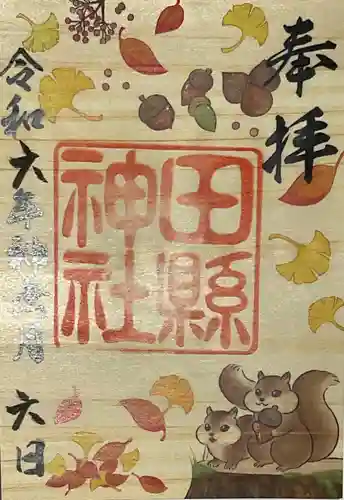 奉拝
田縣
神社
令和六年神無月
六日